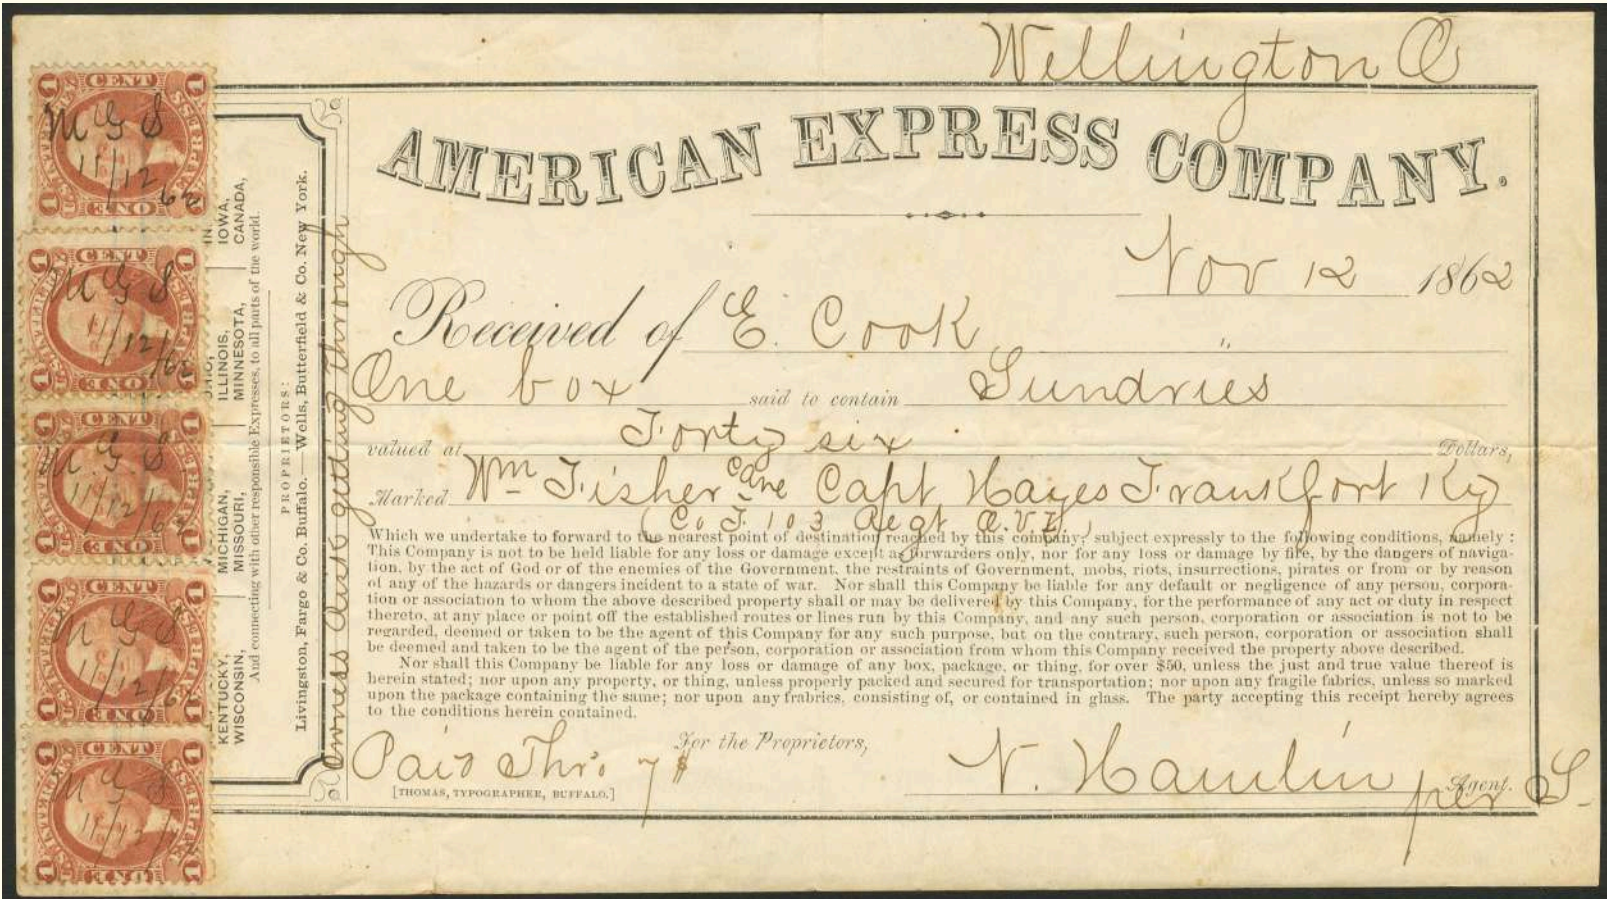 Wellington O
AMERICAN EXPRESS COMPANY.
Nov 12 1862
Received of E. Cook
One box said to contain Sundries
valued at Forty six Dollars,
Marked Wm Fisher Care Capt Hayes Frankfort Ky
(Co F. 103 Regt O.V.I.)
Which we undertake to forward to the nearest point of destination reached by this company, subject expressly to the following conditions, namely :
This Company is not to be held liable for any loss or damage except as forwarders only, nor for any loss or damage by fire, by the dangers of naviga-
tion, by the act of God or of the enemies of the Government, the restraints of Government, mobs, riots, insurrections, pirates or from or by reason
of any of the hazards or dangers incident to a state of war. Nor shall this Company be liable for any default or negligence of any person, corpora-
tion or association to whom the above described property shall or may be delivered by this Company, for the performance of any act or duty in respect
thereto, at any place or point off the established routes or lines run by this Company, and any such person, corporation or association is not to be
regarded, deemed or taken to be the agent of this Company for any such purpose, but on the contrary, such person, corporation or association shall
be deemed and taken to be the agent of the person, corporation or association from whom this Company received the property above described.
Nor shall this Company be liable for any loss or damage of any box, package, or thing, for over $50, unless the just and true value thereof is
herein stated; nor upon any property, or thing, unless properly packed and secured for transportation; nor upon any fragile fabrics, unless so marked
upon the package containing the same; nor upon any frabrics, consisting of, or contained in glass. The party accepting this receipt hereby agrees
to the conditions herein contained.
For the Proprietors,
Paid Thro. 7$
N. Hamlin Agent.
per S.
[THOMAS, TYPOGRAPHER, BUFFALO.]
Owners Risk getting through
PROPRIETORS:
Livingston, Fargo & Co. Buffalo.—Wells, Butterfield & Co. New York.
KENTUCKY, MICHIGAN, ILLINOIS, IOWA,
WISCONSIN, MISSOURI, MINNESOTA, CANADA,
And connecting with other responsible Expresses, to all parts of the world.
1 CENT 1
EXPRESS
U.S. INTER. REV.
1 ONE 1
M G S
11/12 62
1 CENT 1
EXPRESS
U.S. INTER. REV.
1 ONE 1
M G S
11/12/62
1 CENT 1
EXPRESS
U.S. INTER. REV.
1 ONE 1
M G S
11/12/62
1 CENT 1
EXPRESS
U.S. INTER. REV.
1 ONE 1
M G S
11/12/62
1 CENT 1
EXPRESS
U.S. INTER. REV.
1 CENT 1
M G S
11/12/62